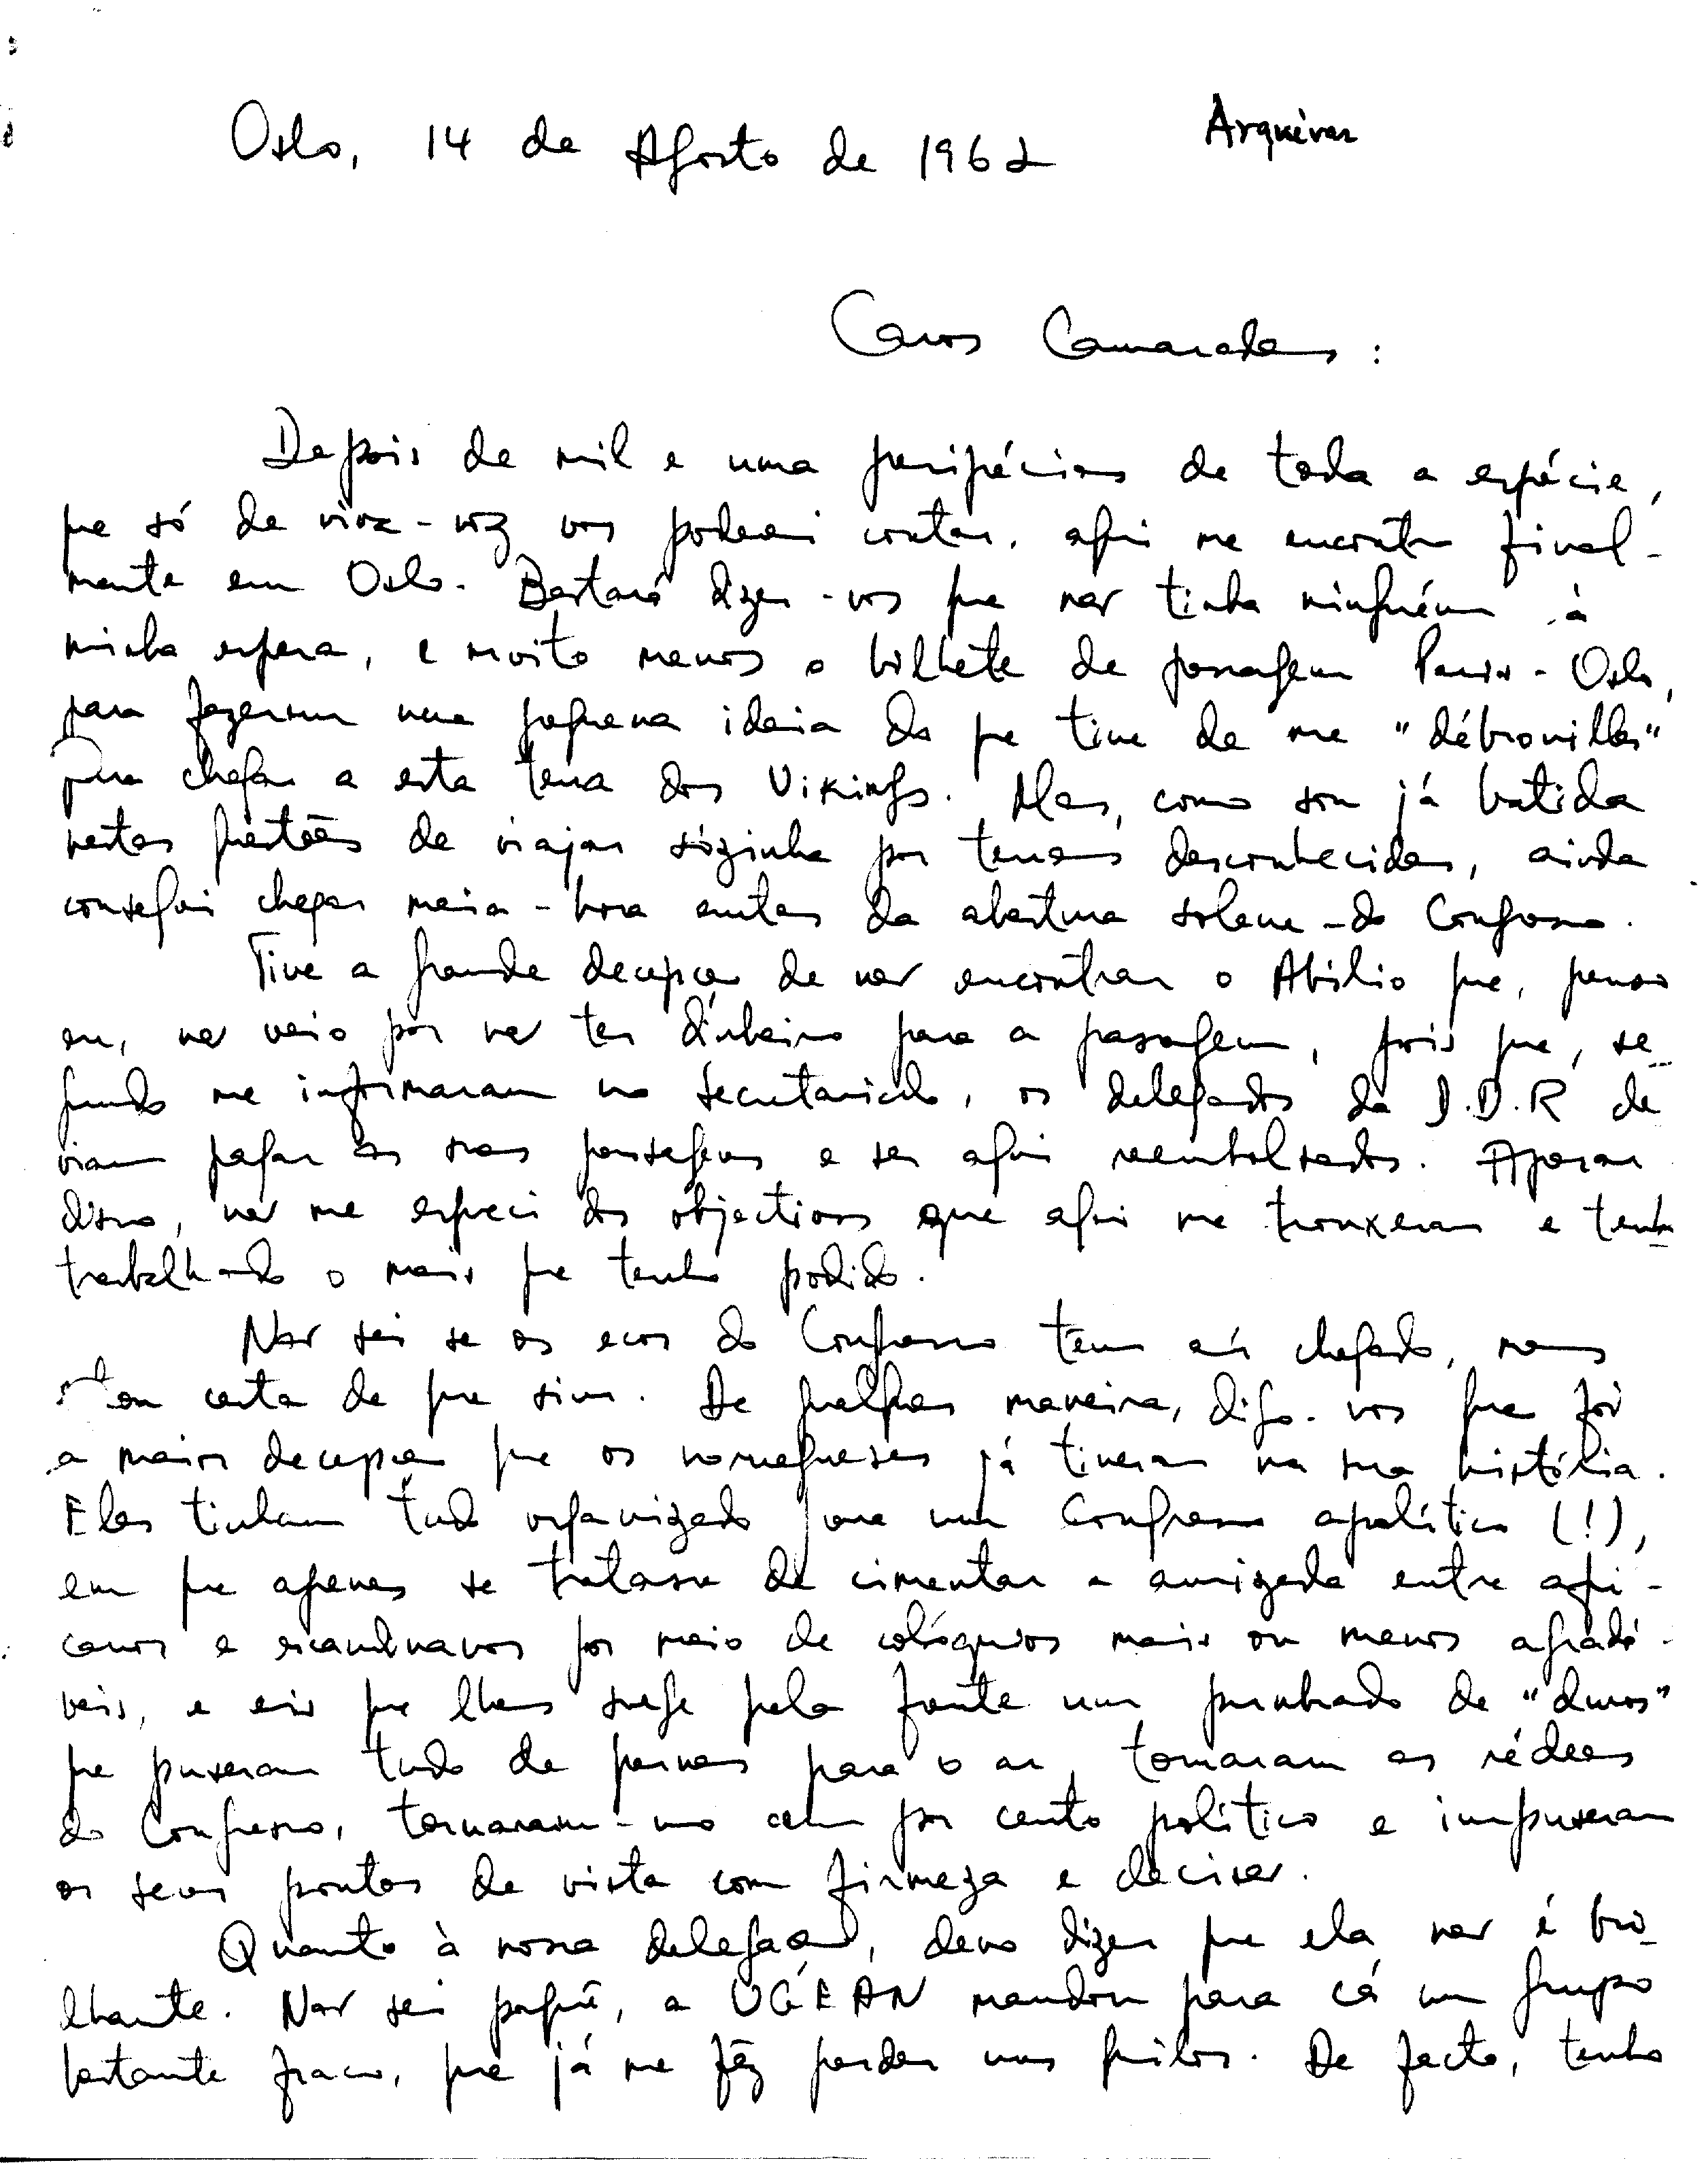 Oslo, 14 de Agosto de 1962
Arquivar
Caros Camaradas :
Depois de mil e uma peripécias de toda a espécie,
que só de viva-voz vos poderei contar, aqui me encontro final-
mente em Oslo. Bastará dizer-vos que não tinha ninguém à
minha espera, e muito menos o bilhete de passagem Paris-Oslo,
para fazerem uma pequena ideia do que tive de me "débrouiller"
para chegar a esta terra dos Vikings. Mas, como sou já batida
nestas questões de viajar sòzinha por terras desconhecidas, ainda
consegui chegar meia-hora antes da abertura solene do Congresso.
Tive a grande decepção de não encontrar o Abílio que, penso
eu, não veio por não ter dinheiro para a passagem, pois que, se-
gundo me informaram no Secretariado, os delegados da D.D.R de
viam pagar as suas passagens e ser aqui reembolsados. Apesar
disso, não me esqueci dos objectivos que aqui me trouxeram e tenho
trabalhado o mais que tenho podido.
Não sei se os ecos do Congresso têm aí chegado, mas
estou certa de que sim. De qualquer maneira, digo-vos que foi
a maior decepção que os noruegueses já tiveram na sua história.
Eles tinham tudo organizado para um Congresso apolítico (!),
em que apenas se tratasse de cimentar a amizade entre afri-
canos e escandinavos por meio de colóquios mais ou menos agradá-
veis, e eis que lhes surge pela frente um punhado de "duros"
que puseram tudo de pernas para o ar, tomaram as rédeas
do Congresso, tornaram-no cem por cento político e impuseram
os seus pontos de vista com firmeza e decisão.
Quanto à nossa delegação, devo dizer que ela não é bri-
lhante. Não sei porquê, a UGEAN mandou para cá um grupo
bastante fraco, que já me fêz perder uns quilos. De facto, tenho